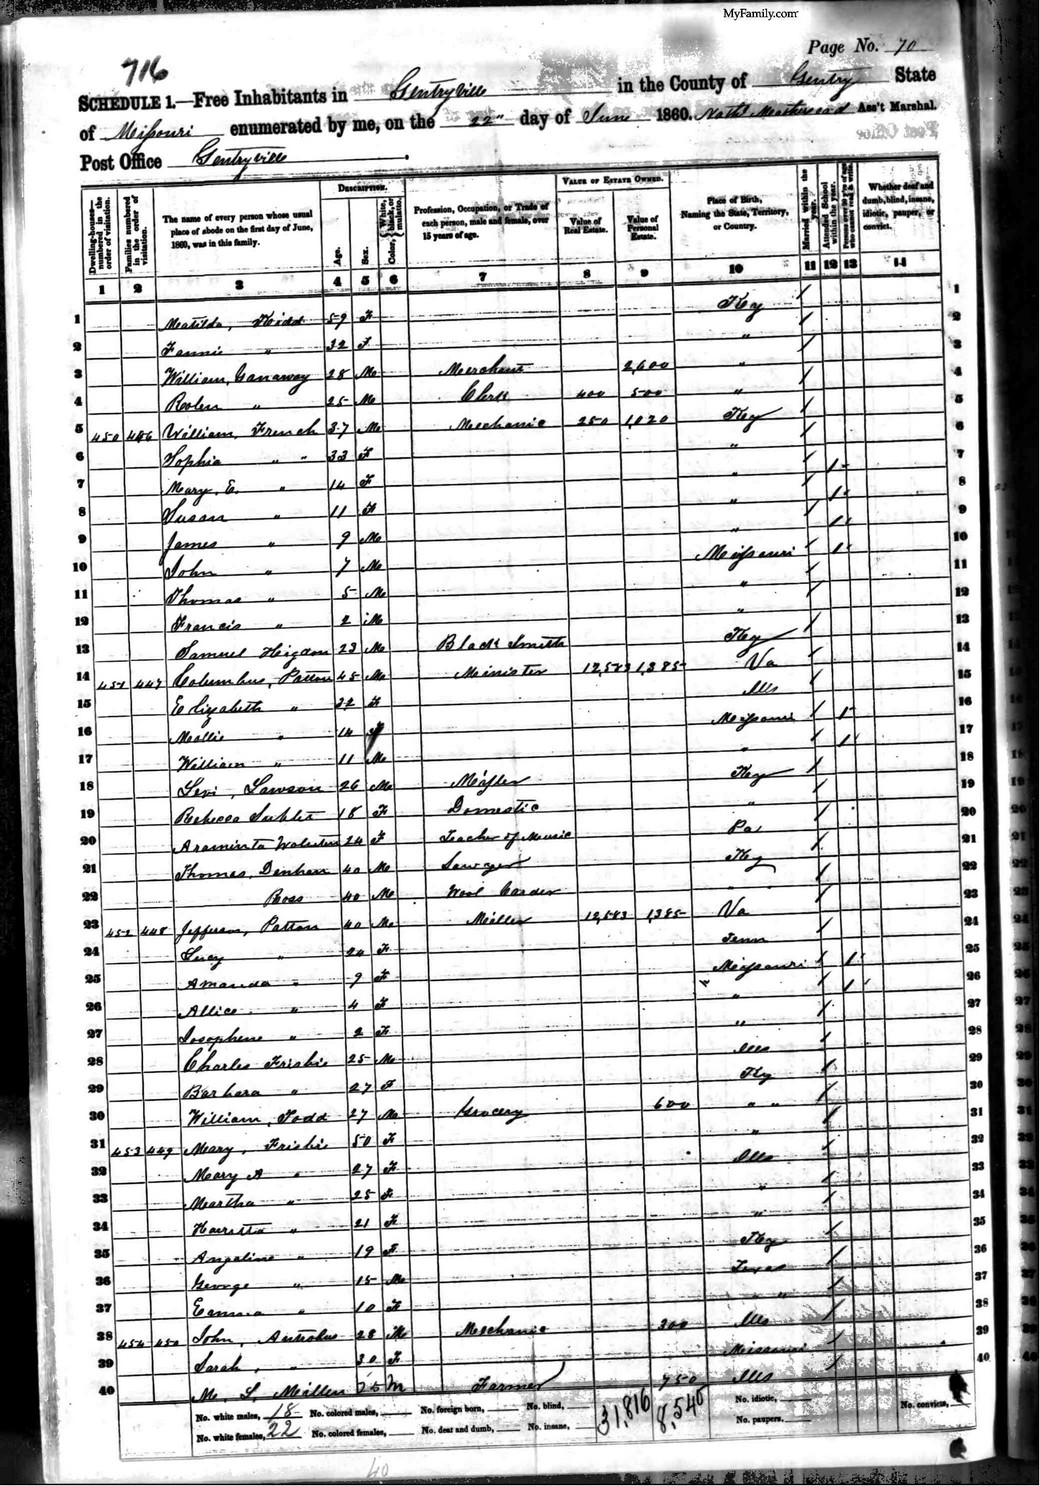 MyFamily.com
Page No. 70
716
SCHEDULE 1.—Free Inhabitants in Gentryville in the County of Gentry State
of Missouri enumerated by me, on the 22" day of June 1860. Ass't Marshal.
Post Office Gentryville
DESCRIPTION. VALUE OF ESTATE OWNED.
Dwelling-houses numbered in the order of visitation. Families numbered in the order of visitation. The name of every person whose usual place of abode on the first day of June, 1860, was in this family. Age. Sex. Color, White, black, or mulatto. Profession, Occupation, or Trade of each person, male and female, over 15 years of age. Value of Real Estate. Value of Personal Estate. Place of Birth, Naming the State, Territory, or Country. Married within the year. Attended School within the year. Whether deaf and dumb, blind, insane, idiotic, pauper, or convict.
1 2 3 4 5 6 7 8 9 10 11 12 13 14
1 Matilda, Kidd 59 F Ky / 1
2 Fannie " 32 F " / 2
3 William, Canaway 28 M Merchant 2,600 " / 3
4 Rolen " 25 M Clerk 400 500 " / 4
5 450 446 William, French 37 M Mechanic 250 1,020 Ky / 5
6 Sophia " " 33 F " / 6
7 Mary, E. " 14 F " / 1 7
8 Susan " 11 F " / 1 8
9 James " 9 M " / 1 9
10 John " 7 M Missouri / 1 10
11 Thomas " 5 M " / 11
12 Francis " 2 M " / 12
13 Samuel Higdon 23 M Black Smith Ky / 13
14 451 447 Columbus, Patton 45 M Minister 12,583 1,385 Va / 14
15 Elizabeth " 32 F Ills / 15
16 Mollie " 14 F Missouri / 1 16
17 William " 11 M " / 1 17
18 Levi, Lawson 26 M Miller Ky / 18
19 Rebecca 18 F Domestic " / 19
20 Araminta 24 F Teacher of Music Pa / 20
21 Thomas, Denham 40 M Sawyer Ky 21
22 Ross 40 M Wool Carder " / 22
23 452 448 Jefferson, Patton 40 M Miller 12,583 1,385 Va / 23
24 Lucy " 24 F Tenn / 24
25 Amanda " 9 F Missouri / 1 25
26 Allice " 4 F " / 1 26
27 Josephene " 2 F " / 27
28 Charles Frisbie 25 M Ills / 28
29 Barbara " 27 F Ky / 29
30 William, Todd 27 M Grocery 600 " " / 30
31 453 449 Mary, Frisbie 50 F " / 31
32 Mary A " 27 F Ills / 32
33 Martha " 25 F " / 33
34 Harietta " 21 F " / 34
35 Angeline " 19 F Ky / 35
36 George " 15 M Texas / 36
37 Emma " 10 F " " / 37
38 454 450 John, 28 M Mechanic 300 Ills / 38
39 Sarah, " 30 F Missouri / 39
40 M. S. Millen M Farmer 750 Ills / 40
No. white males, 18 No. colored males, No. foreign born, No. blind, 31,816 8,540 No. idiotic, No. convicts,
No. white females, 22 No. colored females, No. deaf and dumb, No. insane, No. paupers,
40